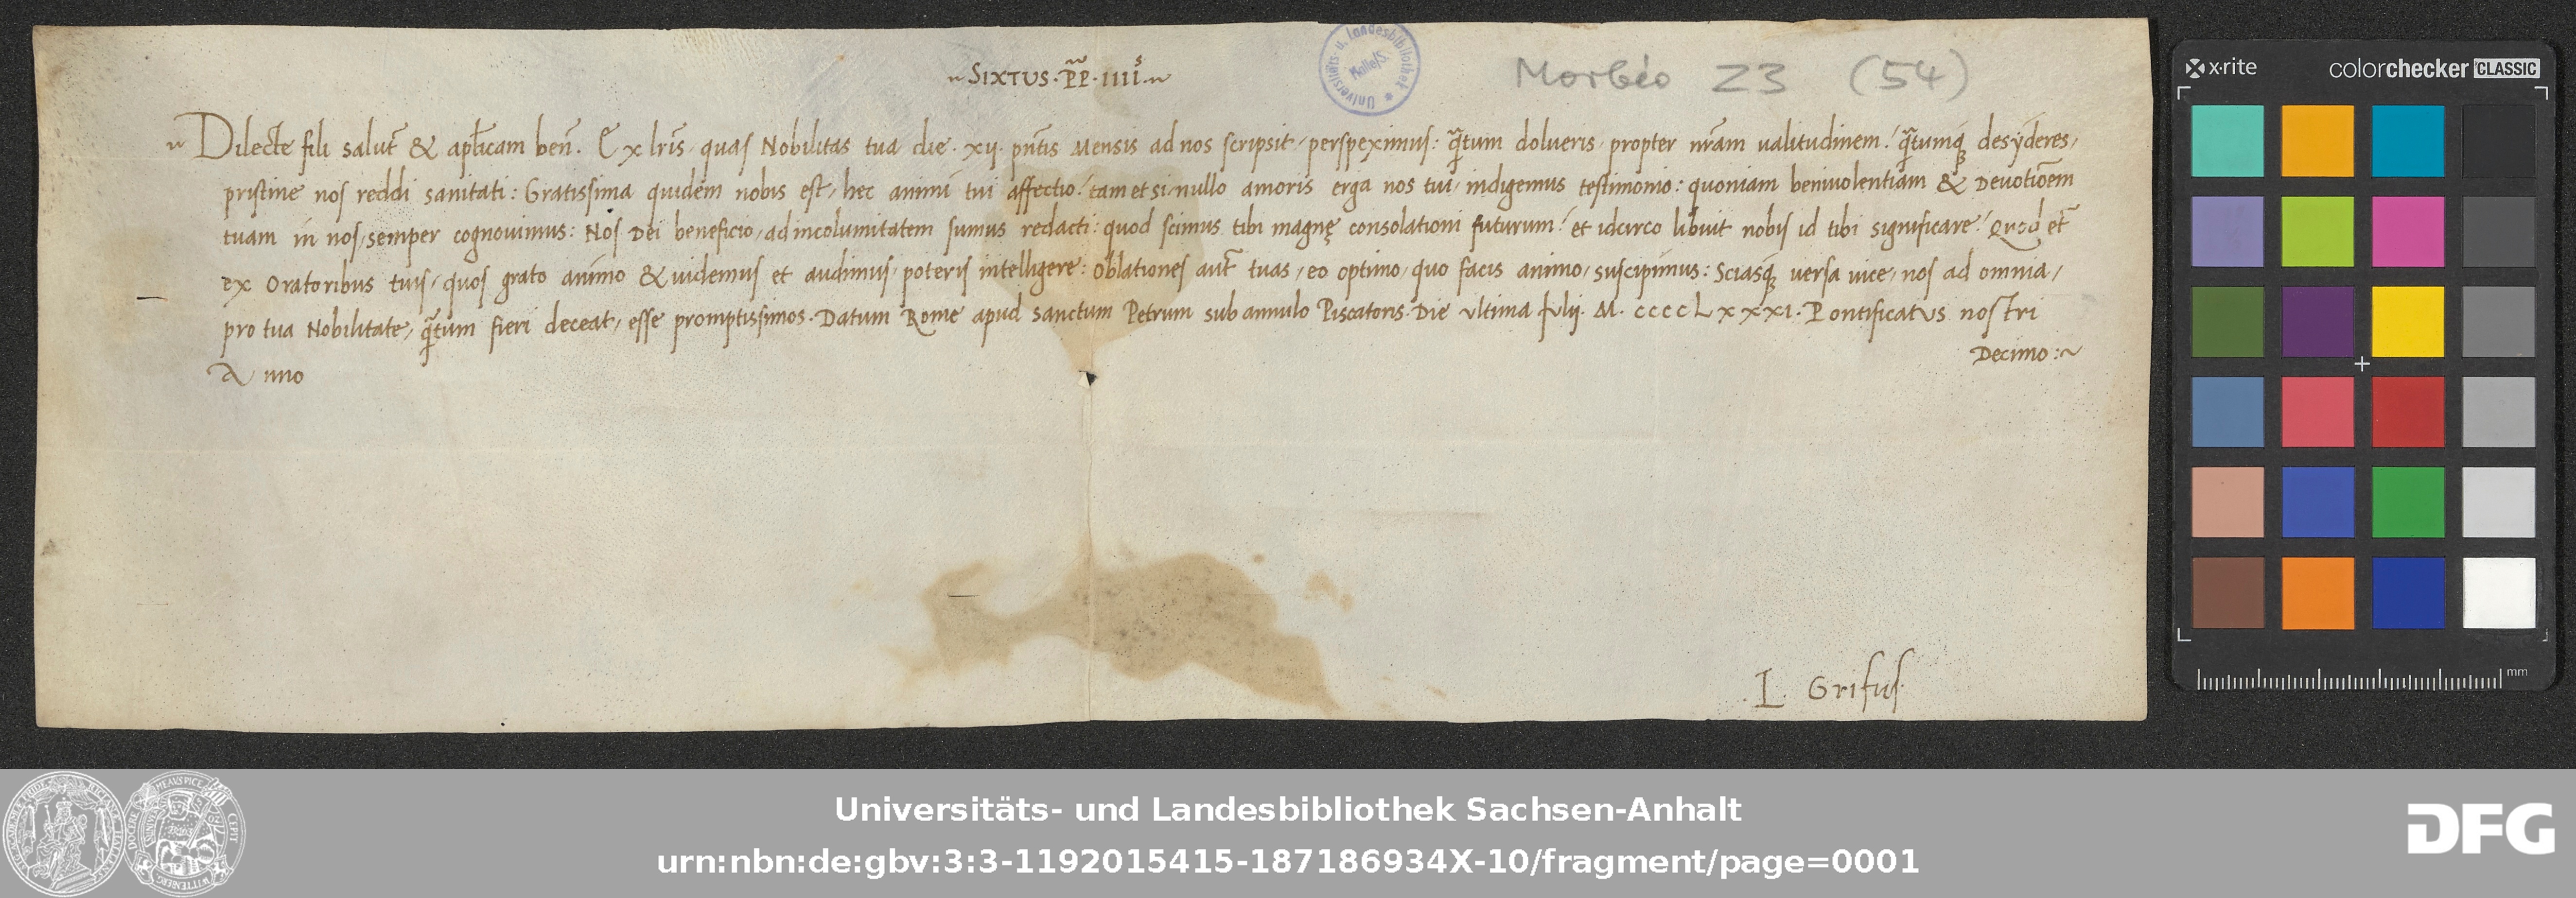 ~ SIXTUS · PP̃ · IIIIˢ ·~
Universitäts- u. Landesbibliothek
Halle/S.
Morbio Z3 (54)
~ Dilecte fili salut̃ & apl̃icam beñ. Ex lr̃is, quas Nobilitas tua die. xij. pñtis Mensis ad nos scripsit, perspeximus: q̃tum dolueris, propter nr̃am ualitudinem! q̃tumq desyderes,
pristine nos reddi sanitati: Gratissima quidem nobis est, hec animi tui affectio! tam et si nullo amoris erga nos tui, indigemus testimonio: quoniam beniuolentiam & Deuotiõem
tuam in nos, semper cognouimus: Nos Dei beneficio, ad incolumitatem sumus redacti: quod scimus tibi magnę consolationi futurum! et idcirco libuit nobis id tibi significare! Quod et̃
ex Oratoribus tuis, quos grato animo & uidemus et audimus, poteris intelligere: Oblationes aut̃ tuas, eo optimo, quo facis animo, suscipimus: Sciasq uersa uice, nos ad omnia,
pro tua Nobilitate, q̃tum fieri deceat, esse promptissimos. Datum Rome apud Sanctum Petrum sub annulo Piscatoris. Die ultima Julij. M. ccccLxxxi. Pontificatus nostri
Anno Decimo :~
L Grifus.
x·rite colorchecker CLASSIC
mm
Universitäts- und Landesbibliothek Sachsen-Anhalt
urn:nbn:de:gbv:3:3-1192015415-187186934X-10/fragment/page=0001
DFG